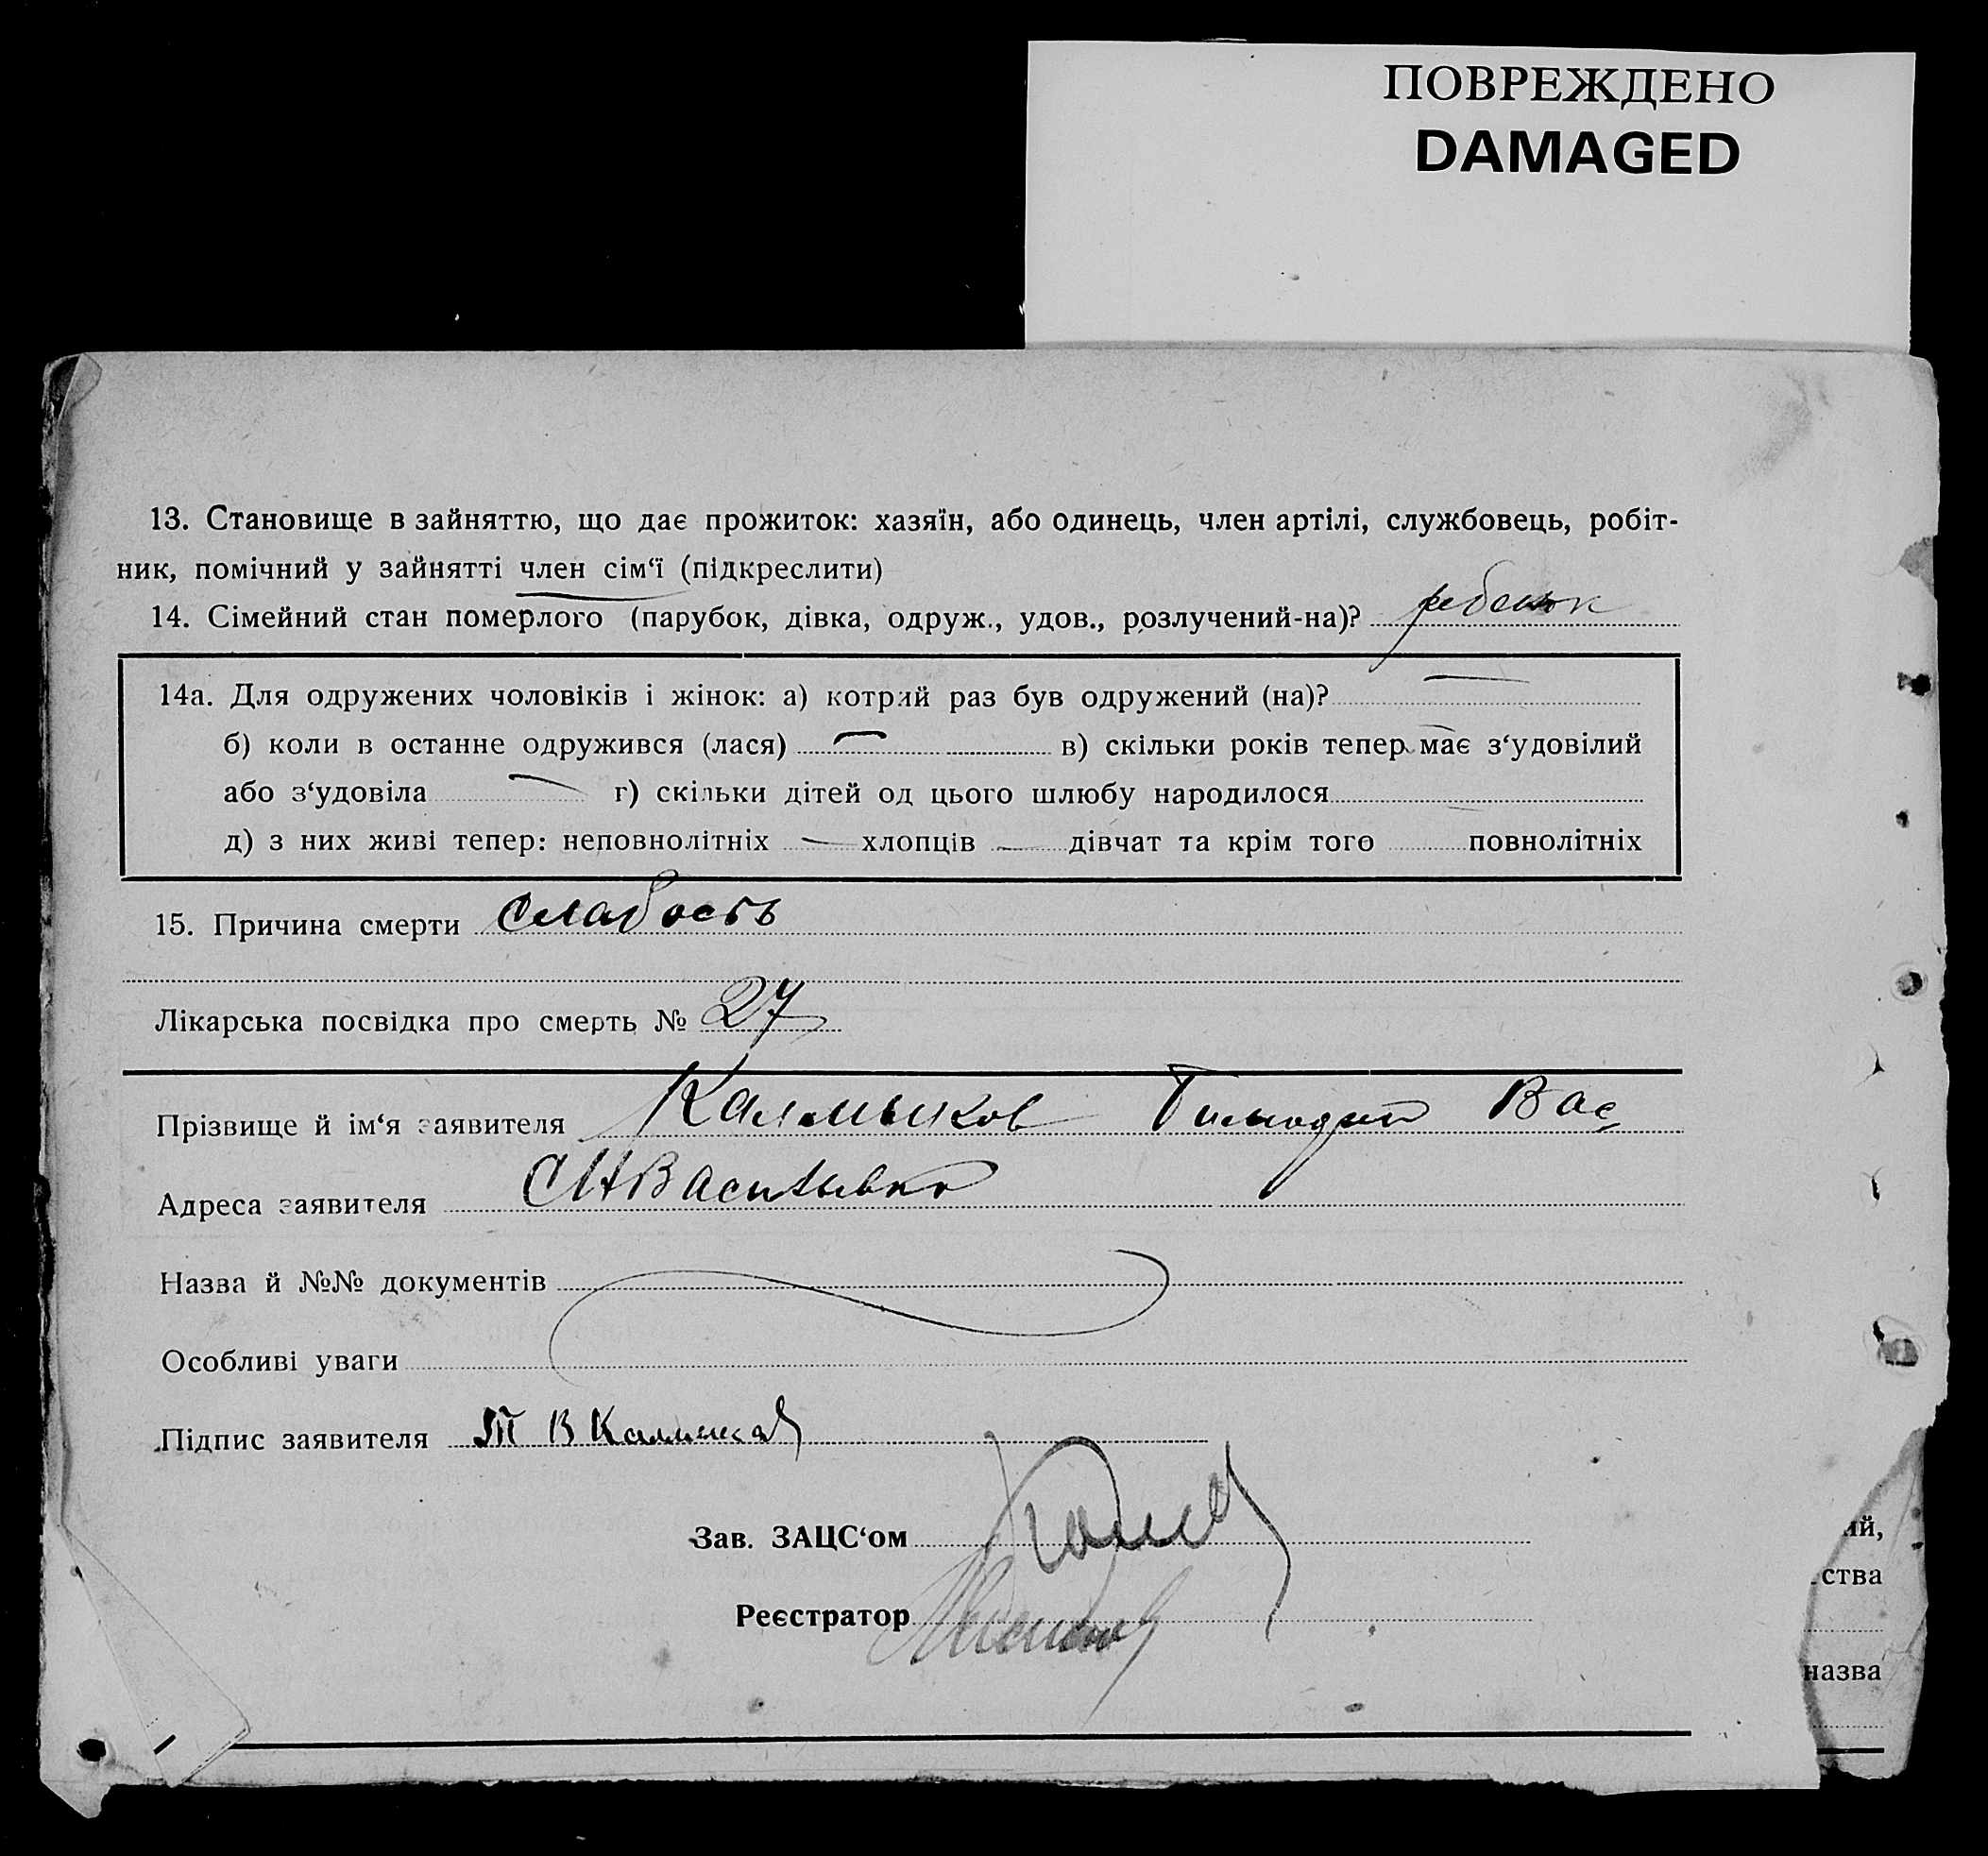 ПОВРЕЖДЕНО
DAMAGED
13. Становище в зайняттю, що дає прожиток: хазяїн, або одинець, член артілі, службовець, робіт-
ник, помічний у зайнятті член сім‘ї (підкреслити)
14. Сімейний стан померлого (парубок, дівка, одруж., удов., розлучений-на)? ребенок
14а. Для одружених чоловіків і жінок: а) котрий раз був одружений (на)? —
б) коли в останне одружився (лася) — в) скільки років тепер має з‘удовілий
або з‘удовіла — г) скільки дітей од цього шлюбу народилося
д) з них живі тепер: неповнолітніх — хлопців — дівчат та крім того повнолітніх
15. Причина смерти Слабость
Лікарська посвідка про смерть № 27
Прізвище й ім‘я заявителя Калмыков Тимофей Вас
Адреса заявителя Васильевка
Назва й №№ документів
Особливі уваги
Підпис заявителя Т В Калмыков
Зав. ЗАЦС‘ом
Реєстратор
ий,
ства
назва